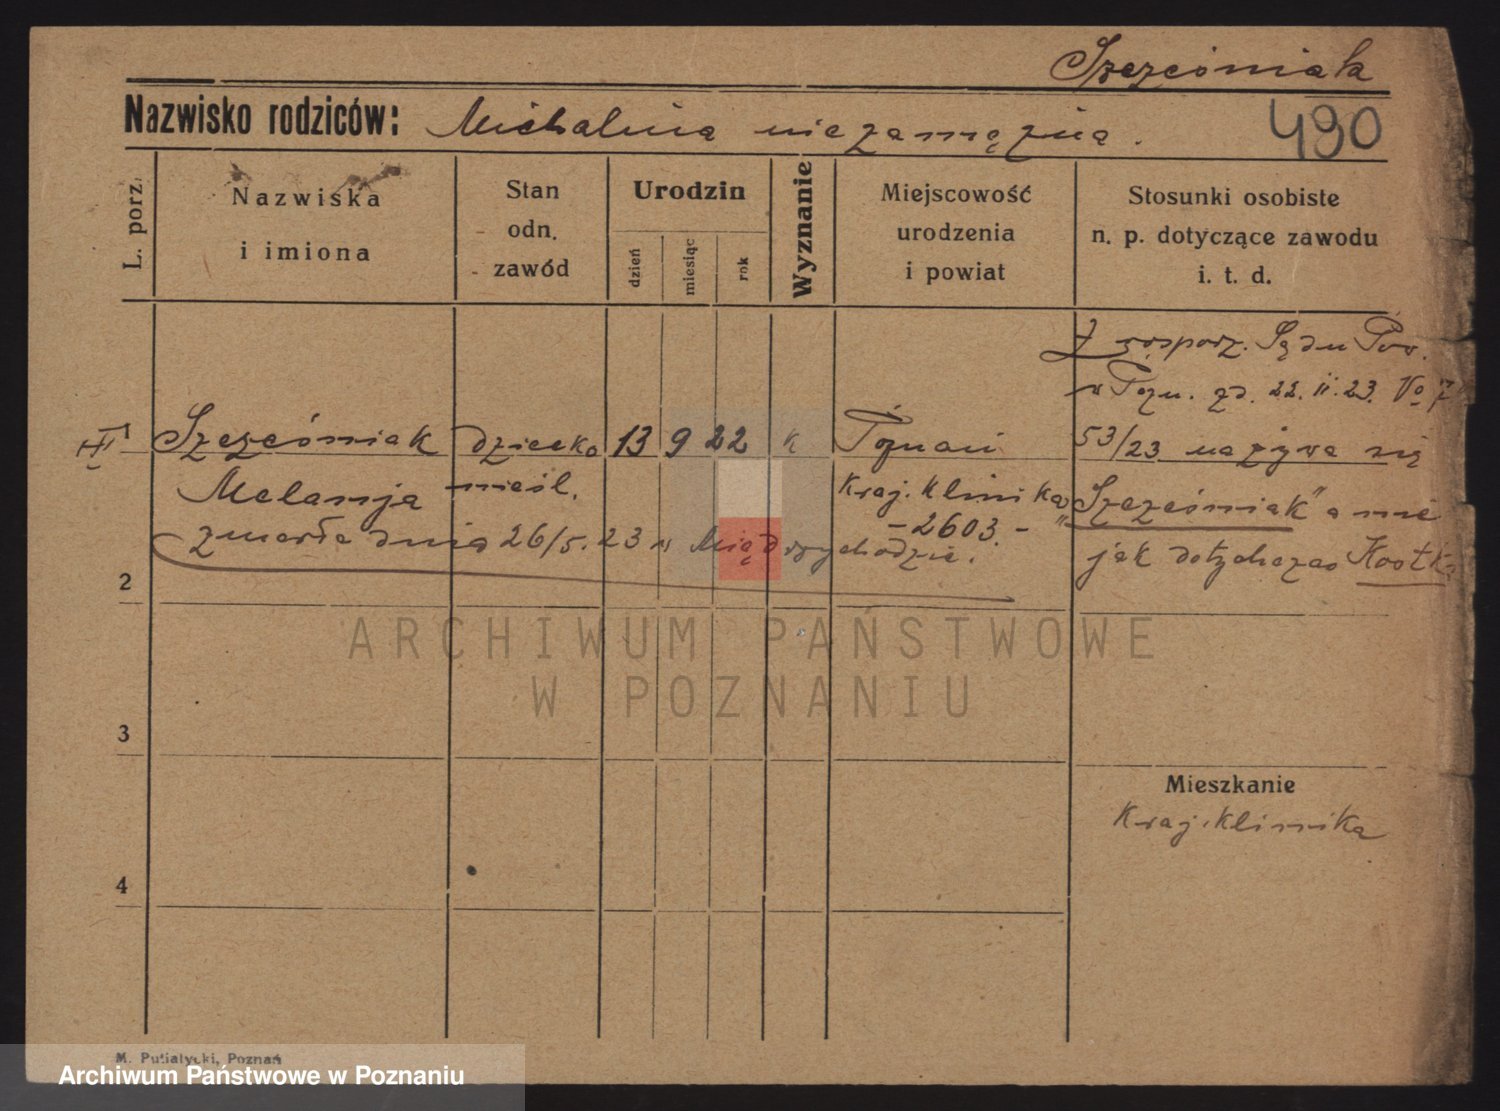 Szcześniak
Nazwisko rodziców: Michalina niezamężna.
490
L. porz.
Nazwiska
i imiona
Stan
odn.
zawód
Urodzin
dzień
miesiąc
rok
Wyznanie
Miejscowość
urodzenia
i powiat
Stosunki osobiste
n. p. dotyczące zawodu
i. t. d.
Z rosporz. Sądu Pow.
w Pozn. zd. 22.II.23. Vo 7
1 Szcześniak dziecko 13 9 22 k Poznań 53/23 nazywa się
Melanja nieśl. Kraj. Klinika „Szcześniak” a nie
zmarła dnia 26/5.23 w Międzychodzie. -2603.-
jak dotychczas Kostk
2
ARCHIWUM PAŃSTWOWE
W POZNANIU
3
Mieszkanie
Kraj. Klinika
4
M. Putiatycki, Poznań
Archiwum Państwowe w Poznaniu